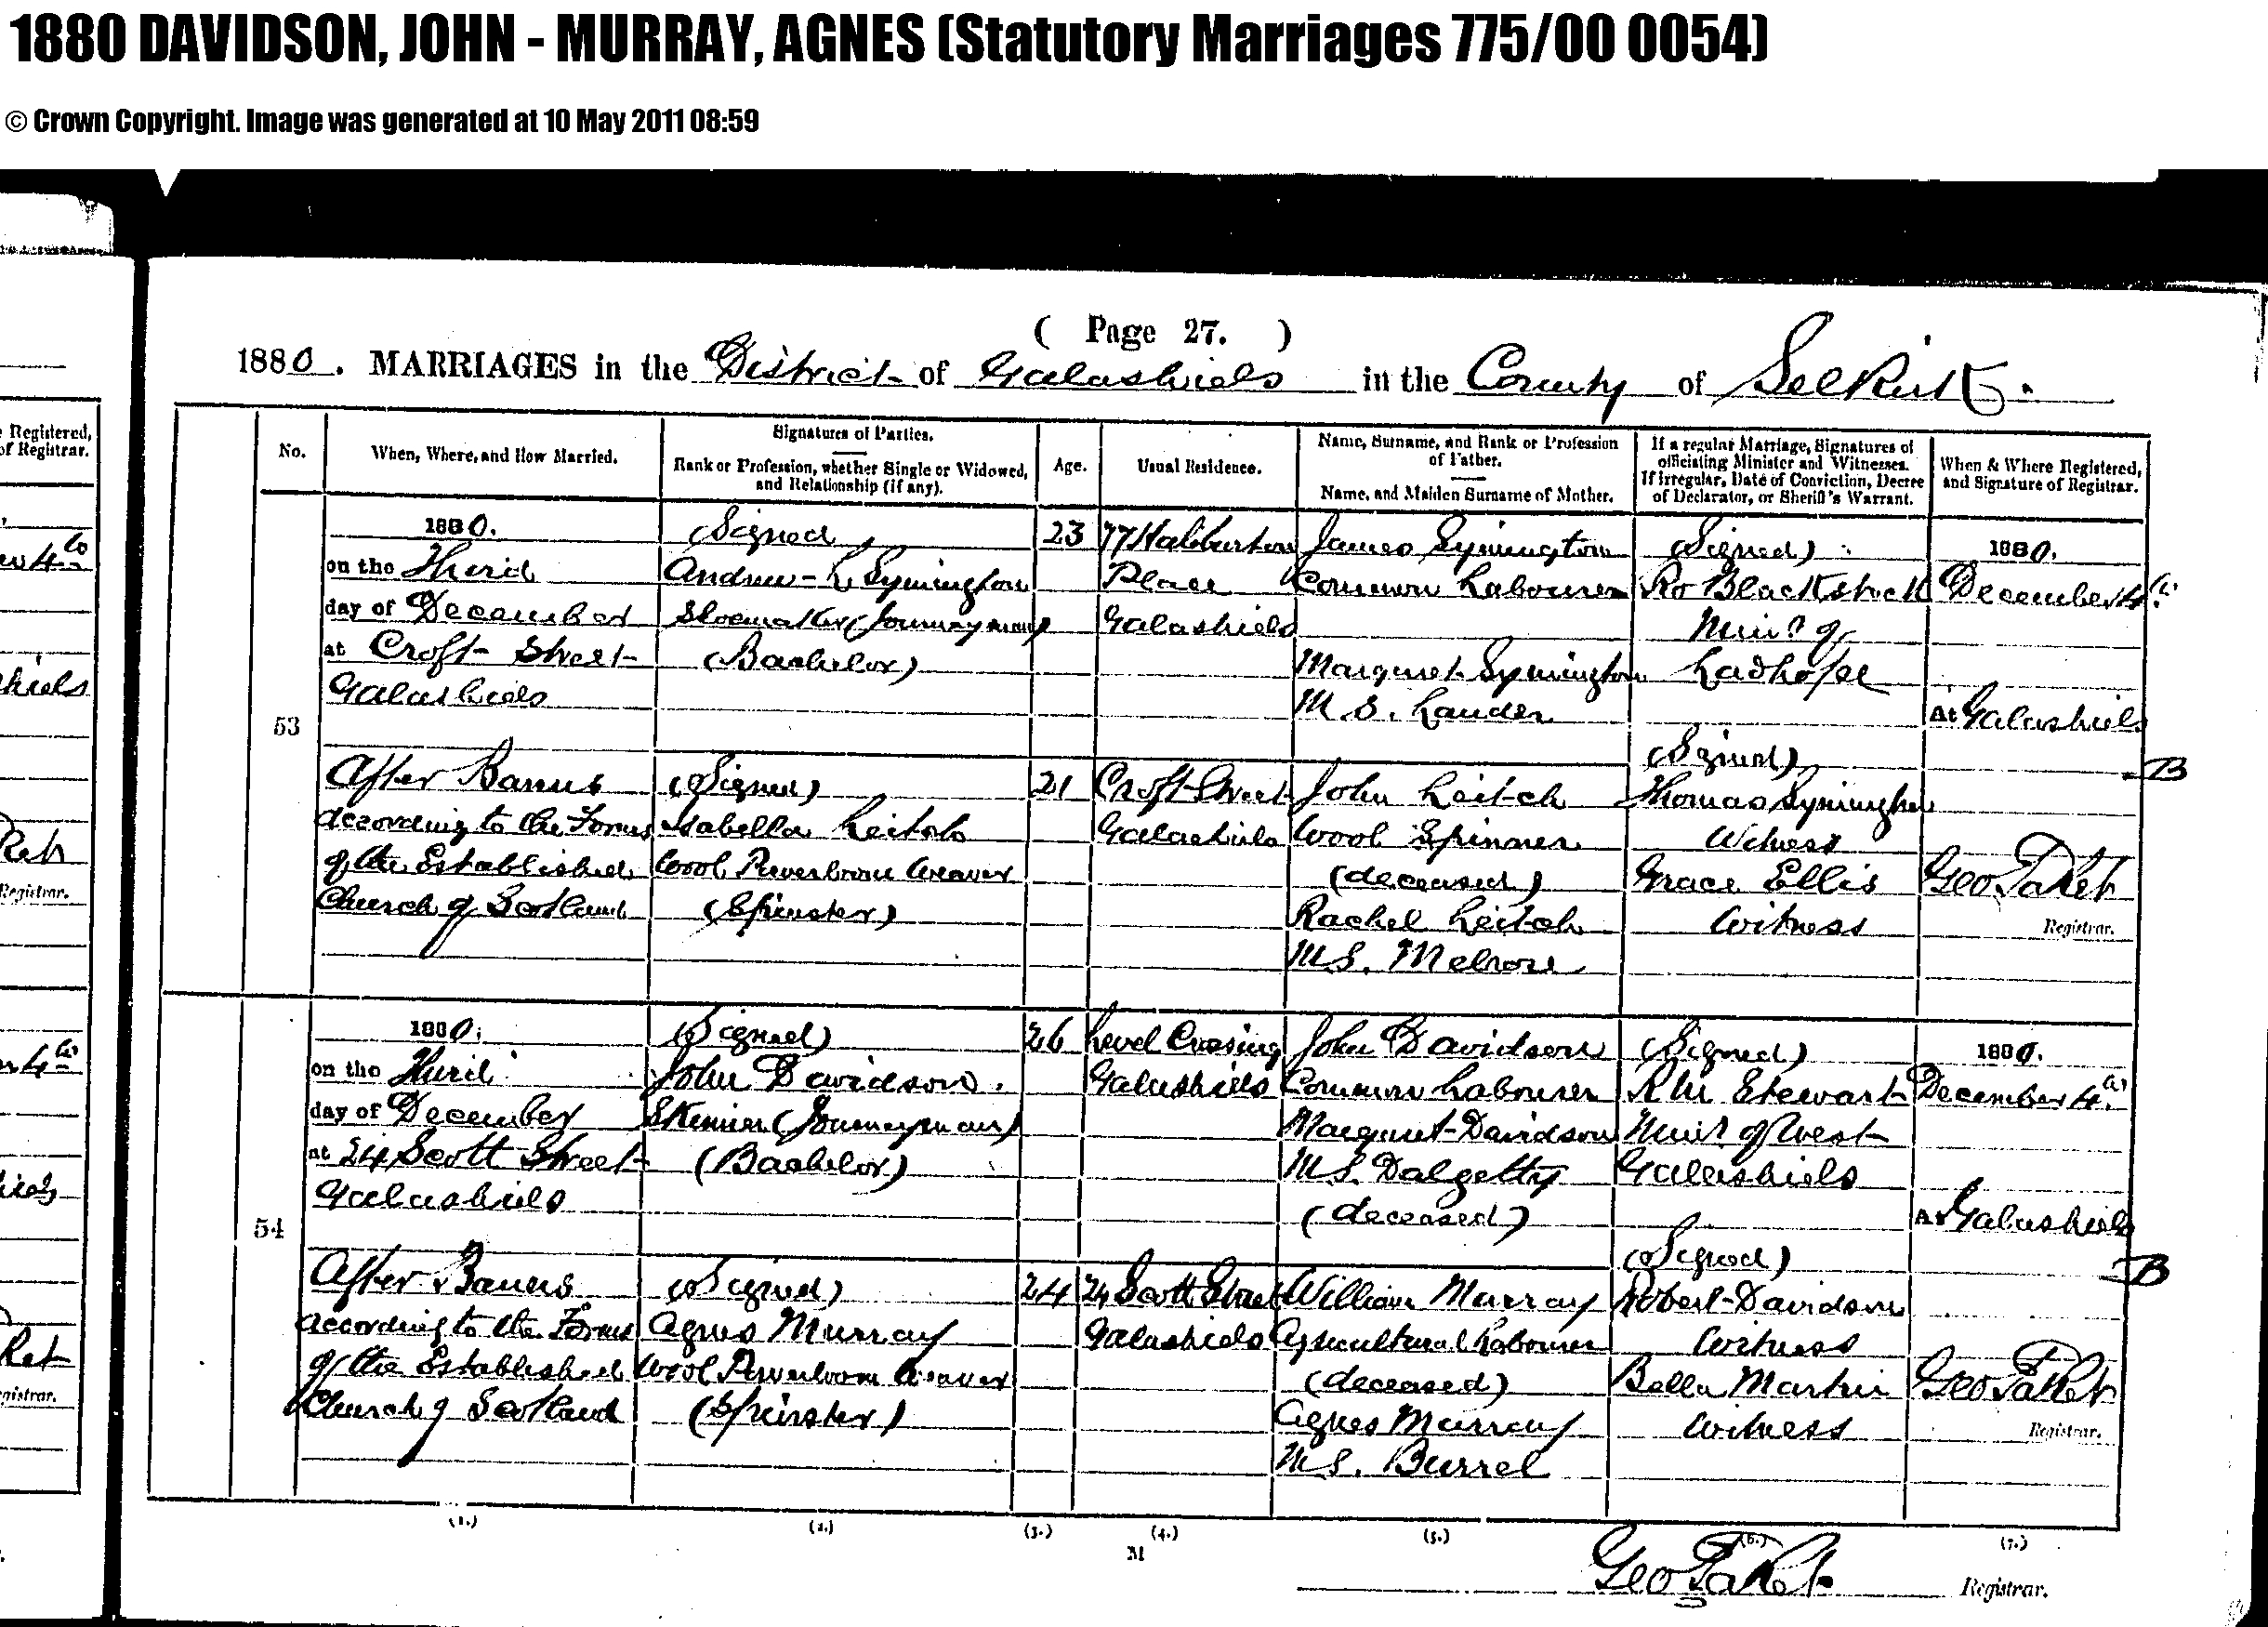 1880 DAVIDSON, JOHN - MURRAY, AGNES (Statutory Marriages 775/00 0054)
© Crown Copyright. Image was generated at 10 May 2011 08:59
( Page 27. )
1880. MARRIAGES in the District of Galashiels in the County of Selkirk.
No.
When, Where, and How Married.
Signatures of Parties.
Rank or Profession, whether Single or Widowed,
and Relationship (if any).
Age.
Usual Residence.
Name, Surname, and Rank or Profession
of Father.
Name, and Maiden Surname of Mother.
If a regular Marriage, Signatures of
officiating Minister and Witnesses.
If Irregular, Date of Conviction, Decree
of Declarator, or Sheriff's Warrant.
When & Where Registered,
and Signature of Registrar.
53
1880.
on the Third
day of December
at Croft Street
Galashiels
After Banns
according to the Forms
of the Established
Church of Scotland
(Signed
Andrew L Symington
Shoemaker (Journeyman)
(Bachelor)
(Signed)
Isabella Leitch
Wool Powerloom Weaver
(Spinster)
23
21
77 Haliburton
Place
Galashiels
Croft Street
Galashiels
James Symington
Common Labourer
Margaret Symington
M.S. Lauder
John Leitch
Wool Spinner
(deceased)
Rachel Leitch
M.S. Melrose
(Signed)
Ro Blackstock
Minr of
Ladhope
(Signed)
Thomas Symington
Witness
Grace Ellis
Witness
1880.
December 4th
At Galashiels
B
Geo Tait
Registrar.
54
1880.
on the Third
day of December
at 24 Scott Street
Galashiels
After Banns
according to the Forms
of the Established
Church of Scotland
(Signed)
John Davidson
Skinner (Journeyman)
(Bachelor)
(Signed)
Agnes Murray
Wool Powerloom Weaver
(Spinster)
26
24
Level Crossing
Galashiels
24 Scott Street
Galashiels
John Davidson
Common Labourer
Margaret Davidson
M.S. Dalgetty
(deceased)
William Murray
Agricultural Labourer
(deceased)
Agnes Murray
M.S. Burrel
(Signed)
R M Stewart
Minr of West
Galashiels
(Signed)
Robert Davidson
Witness
Bella Martin
Witness
1880.
December 4th
At Galashiels
B
Registrar.
(1.) (2.) (3.) (4.) (5.) (6.) (7.)
M
Registrar.